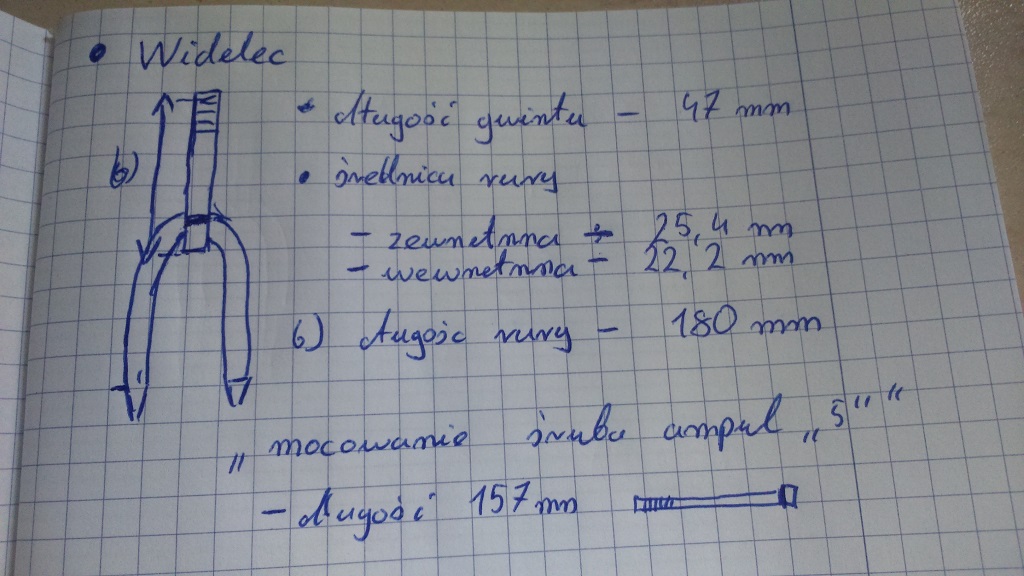 • Widelec
• długość gwintu - 47 mm
6)
• średnica rury
- zewnetrzna - 25,4 mm
- wewnetrzna - 22,2 mm
6) długośc rury - 180 mm
„mocowanie śruba ampul „5" "
- długość 157mm